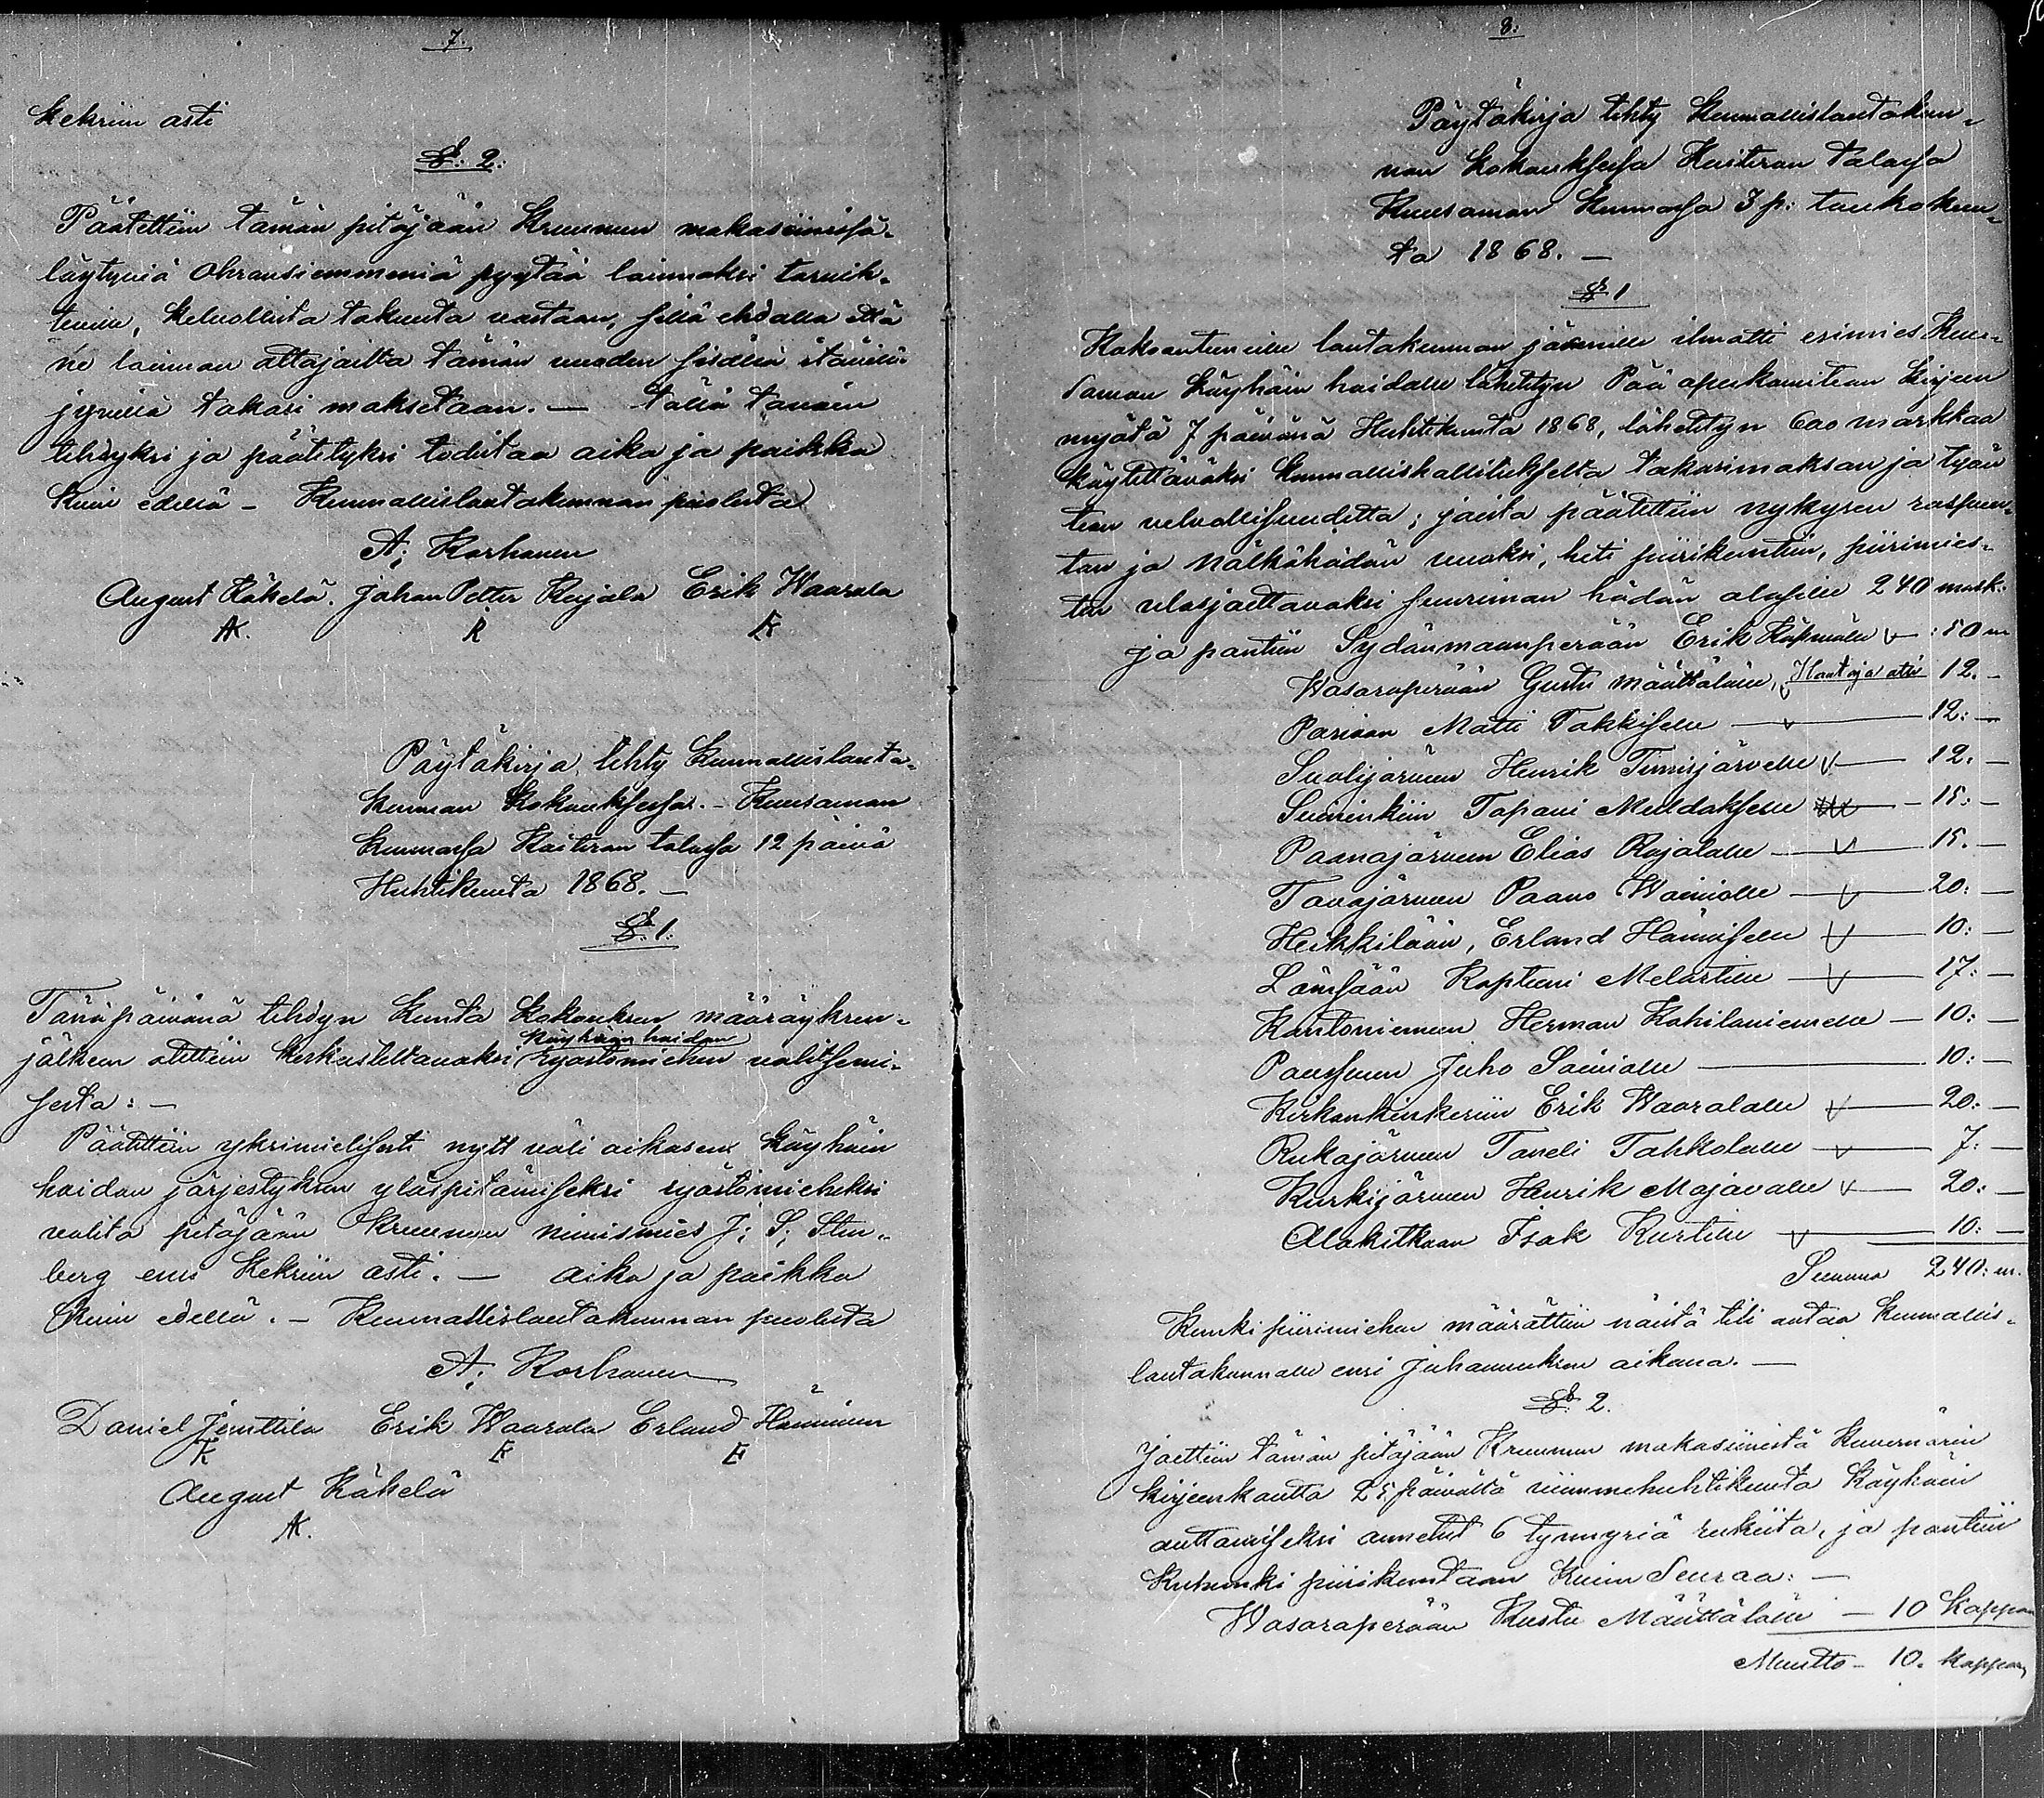 7.
Kekriin asti
§: 2:
Päätettiin tämän pitäjään Kruunun makasiinissa-
läytyviä Ohransiemmeniä pyytää lainnaksi tarvih-
teville, Kelvollista takuuta vastaan, sillä ehdolla että
ne lainnan ottajailta tämän vuoden sisällä
jyvillä takasi maksetaan. — tällä tavoin
tehdyksi ja päätetyksi todistaa aika ja paikka
Kuin edellä - Kunnallislautakunnan puolesta
A; Korhonen
August Käkelä. Johan Petter Rajala Erik Waarala
AK. R E
Päytäkirja, tehty Kunnallislauta-
kunnan Kokouksessa. - Kuusamon
Kunnassa Kaiteran talossa 12 päivä
Huhtikuuta 1868. —
§. 1:
Tänäpäivänä tehdyn Kunta Kokouksen määräyksen-
Käyhäin haidan
jälken otettiin Keskusteltavaksi ryästömiehen valitsemi-
sesta: —
Päätettiin yksimielisesti nytt väli aikasene Käyhäin
haidan järjestyksen yläspitämiseksi ryästömieheksi
valita pitäjään Kruunun nimismies J; S; Sten-
berg ens Kekriin asti. — aika ja paikka
Kuin edellä. - Kunnallislautakunnan puolesta
A; Korhonen
Daniel Jänttilä Erik Waarala Erland Hänninen
E E
August Käkelä
AK.
8:
Päytäkirja tehty Kunnallislautakun-
nan Kokouksessa Kaiteran talossa
Kuusamon Kunnassa 3 p: toukokuu-
ta 1868. —
§ 1
Kokoontuneille lautakunnan jäsenille ilmotti esimies Kuu-
samon Käyhäin haidolle lähetetyn Pää apukomitean Kirjeen
myätä 7 päivänä Huhtikuuta 1868, lähetetyn 600 markkaa
käytettäväksi Kunnallishallitukselta takasimakson ja tyän
teon velvollisuudetta; joista päätettiin nykysen rasituu-
tan ja nälkähädän vuoksi, heti piirikuntiin, piirimies-
ten ulosjaettavaksi suuriman hädän alasille 240 mark:
ja pantiin Sydänmaanperään Erik Käsmälle — : 50 m
Wasaraperään Gustu Määttälälle, Hautaja alle 12. —
Posioon Matti Takkiselle — 12: —
Suolijärveen Henrik Timisjärvelle — 12. —
Suininkiin Tapani Muldakselle — 15: —
Paanajärveen Elias Rajalalle — 15. —
Tavajärveen Paavo Wainiolle — 20: —
Heikkilään, Erland Hänniselle — 10: —
Lämsään Kapteeni Melartille — 17: —
Kantoniemeen Herman Kohilaniemelle — 10: —
Pousuun Juho Säiniälle — 10: —
Kirkonkinkeriin Erik Waaralalle — 20: —
Rukajärveen Taneli Tahkolalle — 7: —
Kurkijärveen Henrik Majavalle — 20: —
Alakitkaan Isak Kurtille — 10: —
Summa 240: m.
Kunki piirimiehen määrättiin näistä tili antaa Kunnallis-
lautakunnalle ensi Juhannuksen aikana. —
§: 2.
Jaettiin tämän pitäjään Kruunun makasiinistä Kuvernörin
kirjeenkautta 25 päivältä viimmehuhtikuuta Käyhäin
auttamiseksi annetut 6 tynnyriä rukiita, ja pantiin
Kuhunki piirikuntaan Kuin Seuraa: —
Wasaraperään Kustu Määttälälle — 10 Kappaa
Muutto — 10. Kappaa,